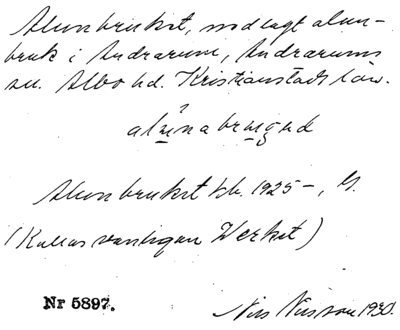 Alunbruket, nedlagt alun-
bruk i Andrarum, Andrarums
sn. Albo hd. Kristianstads län.
alúnabrug̣ad
Alunbruket kb. 1925 –, G.
(Kallas vanligen Verket)
Nr 5897.
Nils Nilsson 1930.